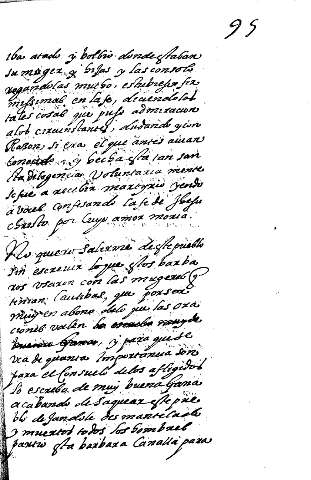 95
iba atado y bolbio donde estaban
su muger y hijos y las consolo
rogandolas mucho estubiesen fir
missimas en la fe, diciendolas
tales cosas que puso admiracion
a los circunstantes, dudando y con
Raçon si era el que antes avian
conocido, y hecha esta tan san
ta diligencia, voluntaria mente
se fue a recibir martyrio yendo
a voces confesando la fe de Jhesu
christo por cuyo amor moria.
No quiero salirme deste pueblo
sin escrevir lo que estos barba
ros usaron con las mugeres q
tenian cautibas, que por ser
muy en abono de lo que las ora
ciones valen
y para que se
vea de quanta importancia son
para el consuelo de los afligidos
lo escribo de muy buena gana
acabando de saquear este pue
blo de Jandole desmantelado
y muertos todos los hombres
partio esta barbara canalla para